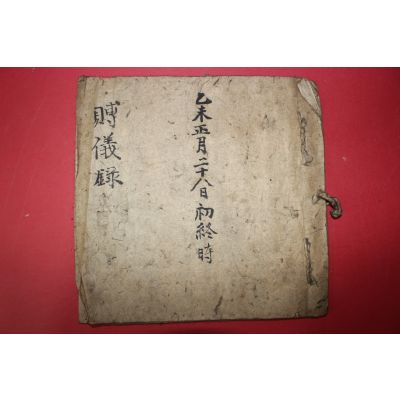 乙未正月二十八日初終時
賻儀錄